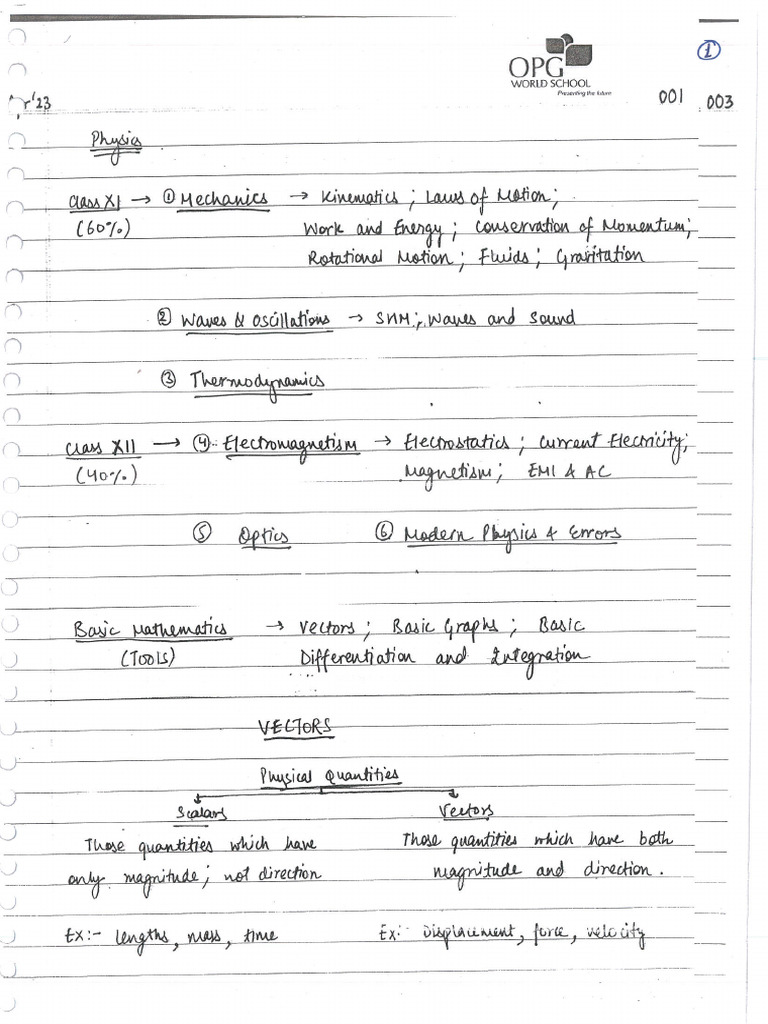 ①
OPG
WORLD SCHOOL
Presenting the future
r'23
001 003
Physics
Class XI → ① Mechanics → Kinematics ; Laws of Motion ;
(60%) Work and Energy ; Conservation of Momentum ;
Rotational Motion ; Fluids ; Gravitation
② Waves & Oscillations → SHM ; Waves and Sound
③ Thermodynamics
Class XII → ④ Electromagnetism → Electrostatics ; Current Electricity ;
(40%) Magnetism ; EMI & AC
⑤ Optics ⑥ Modern Physics & Errors
Basic Mathematics → Vectors ; Basic Graphs ; Basic
(TOOLS) Differentiation and Integration
VECTORS
Physical Quantities
Scalars Vectors
Those quantities which have Those quantities which have both
only magnitude ; not direction magnitude and direction.
Ex:- lengths, mass, time Ex:- Displacement, force, velocity